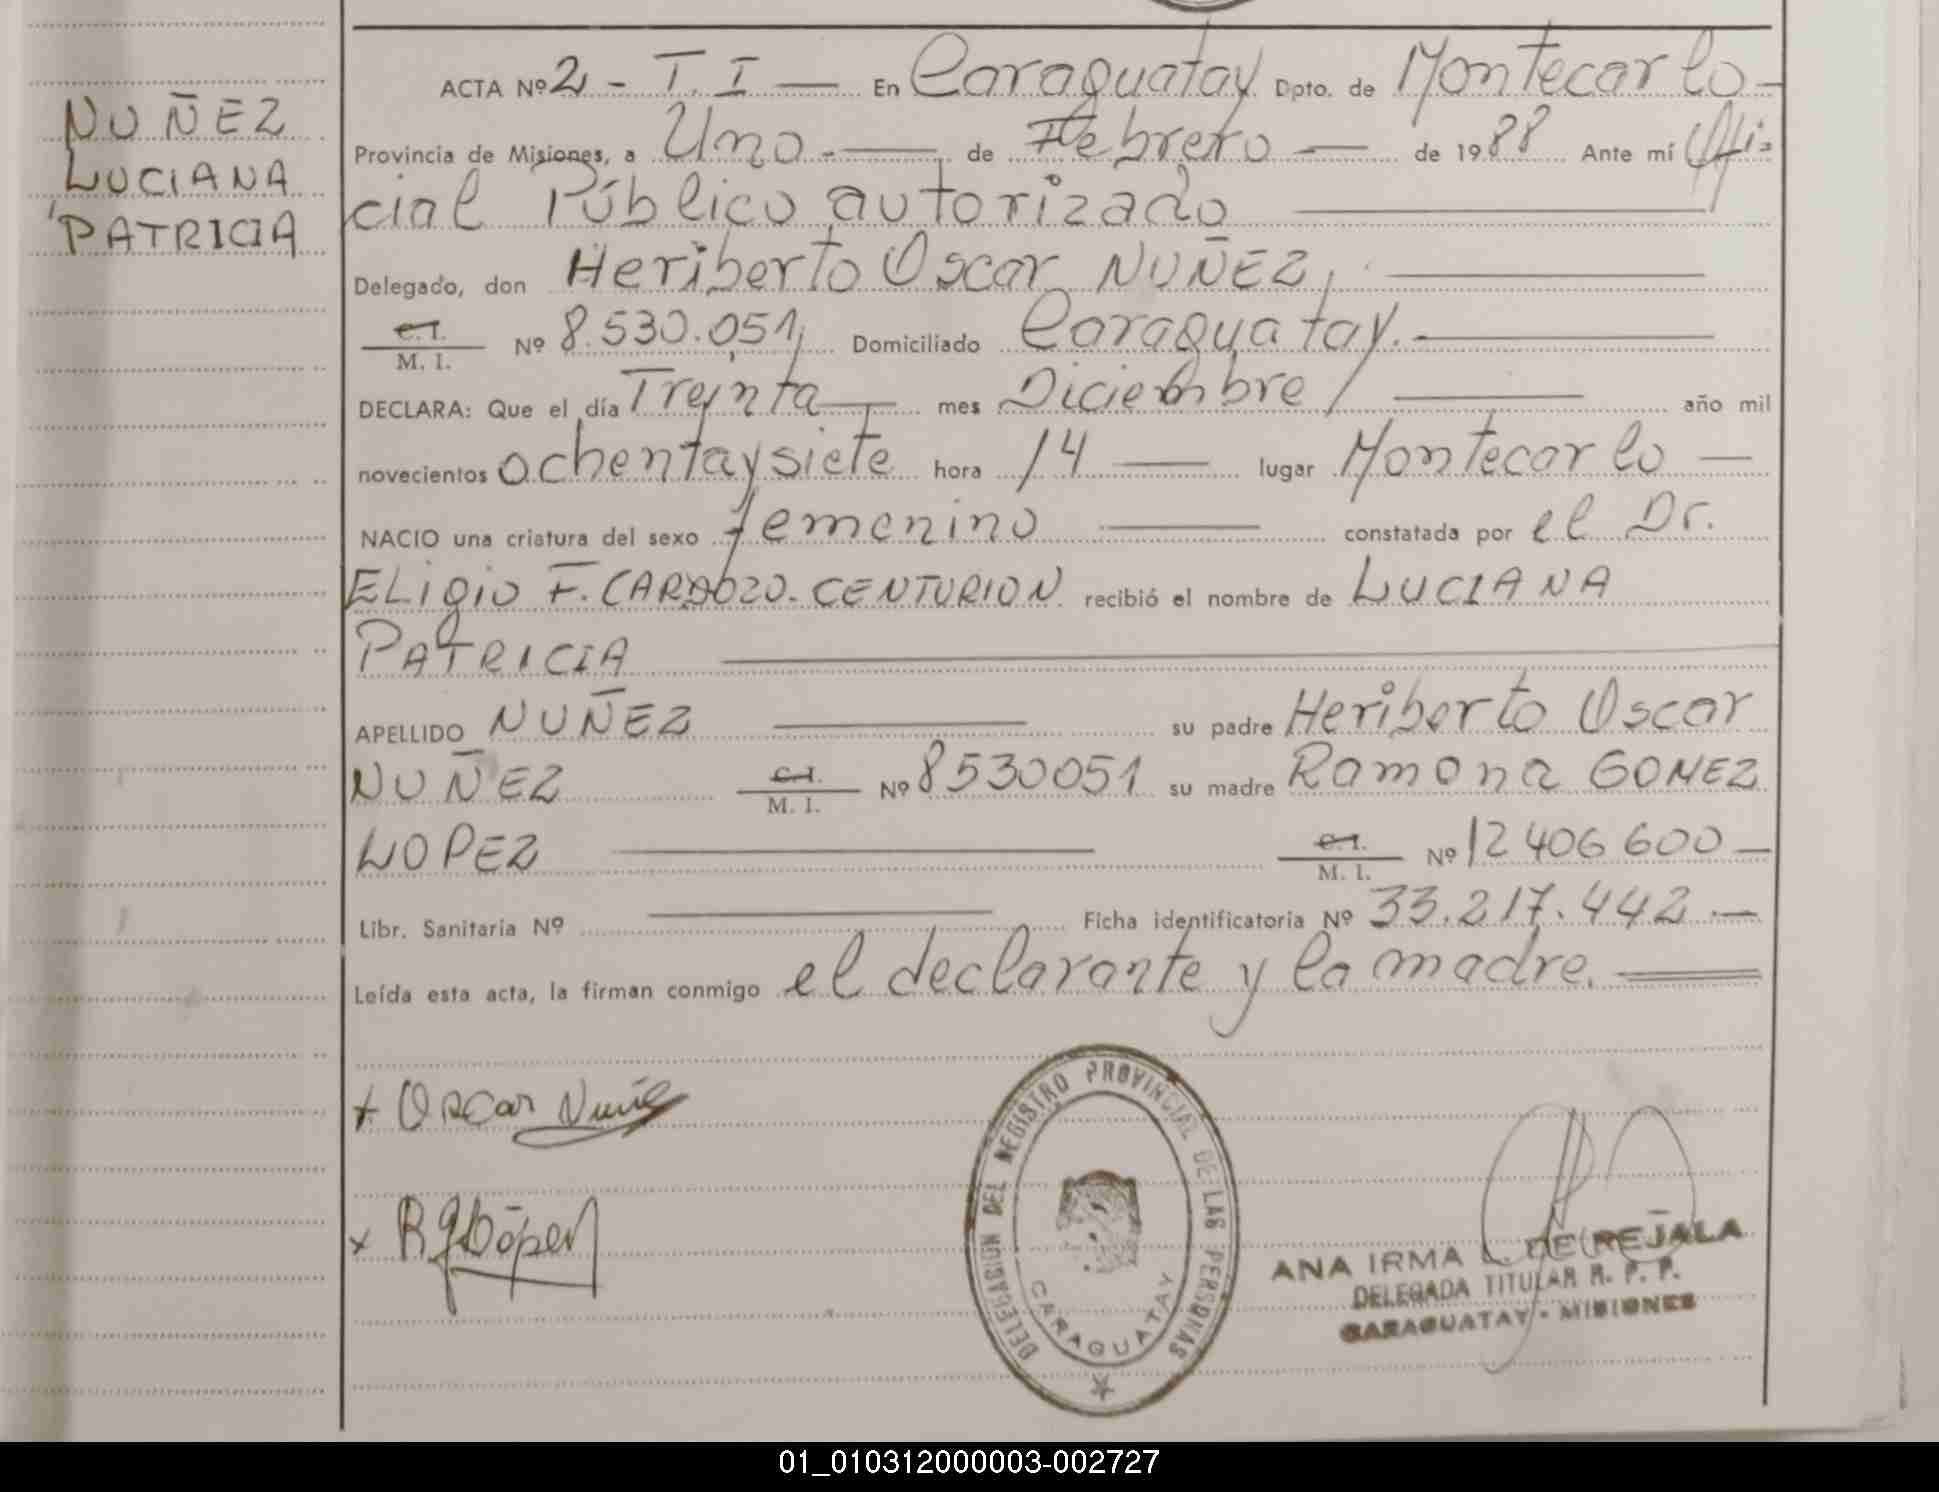 NUÑEZ
LUCIANA
PATRICIA
ACTA Nº 2 - T. I — En Caraguatay Dpto. de Montecarlo -
Provincia de Misiones, a Uno.- — de Febrero — de 1988 Ante mí Ofi=
cial Público autorizado —
Delegado, don Heriberto Oscar NUÑEZ, —
C. I.
M. I. Nº 8.530.051, Domiciliado Caraguatay. —
DECLARA: Que el día Treinta — mes Diciembre — año mil
novecientos ochentaysiete hora 14 — lugar Montecarlo —
NACIO una criatura del sexo femenino — constatada por el Dr.
ELigio F. CARDOZO. CENTURION recibió el nombre de LUCIANA
PATRICIA —
APELLIDO NUÑEZ — su padre Heriberto Oscar
NUÑEZ C.I. M. I. Nº 8530051 su madre Ramona GOMEZ
LOPEZ — C.I. M. I. Nº 12406600 —
Libr. Sanitaria Nº — Ficha identificatoria Nº 33.217.442.—
Leída esta acta, la firman conmigo el declarante y la madre. —
x Oscar Nuñe
x RGLópez
DELEGACION DEL REGISTRO PROVINCIAL DE LAS PERSONAS
CARAGUATAY
ANA IRMA L. DE REJALA
DELEGADA TITULAR R. P. P.
CARAGUATAY - MISIONES
01_010312000003-002727